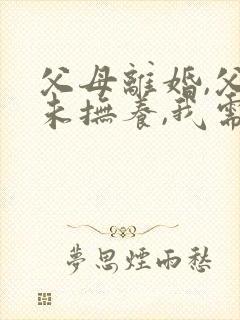 父母離婚,父
未撫養,我需
夢思煙雨愁